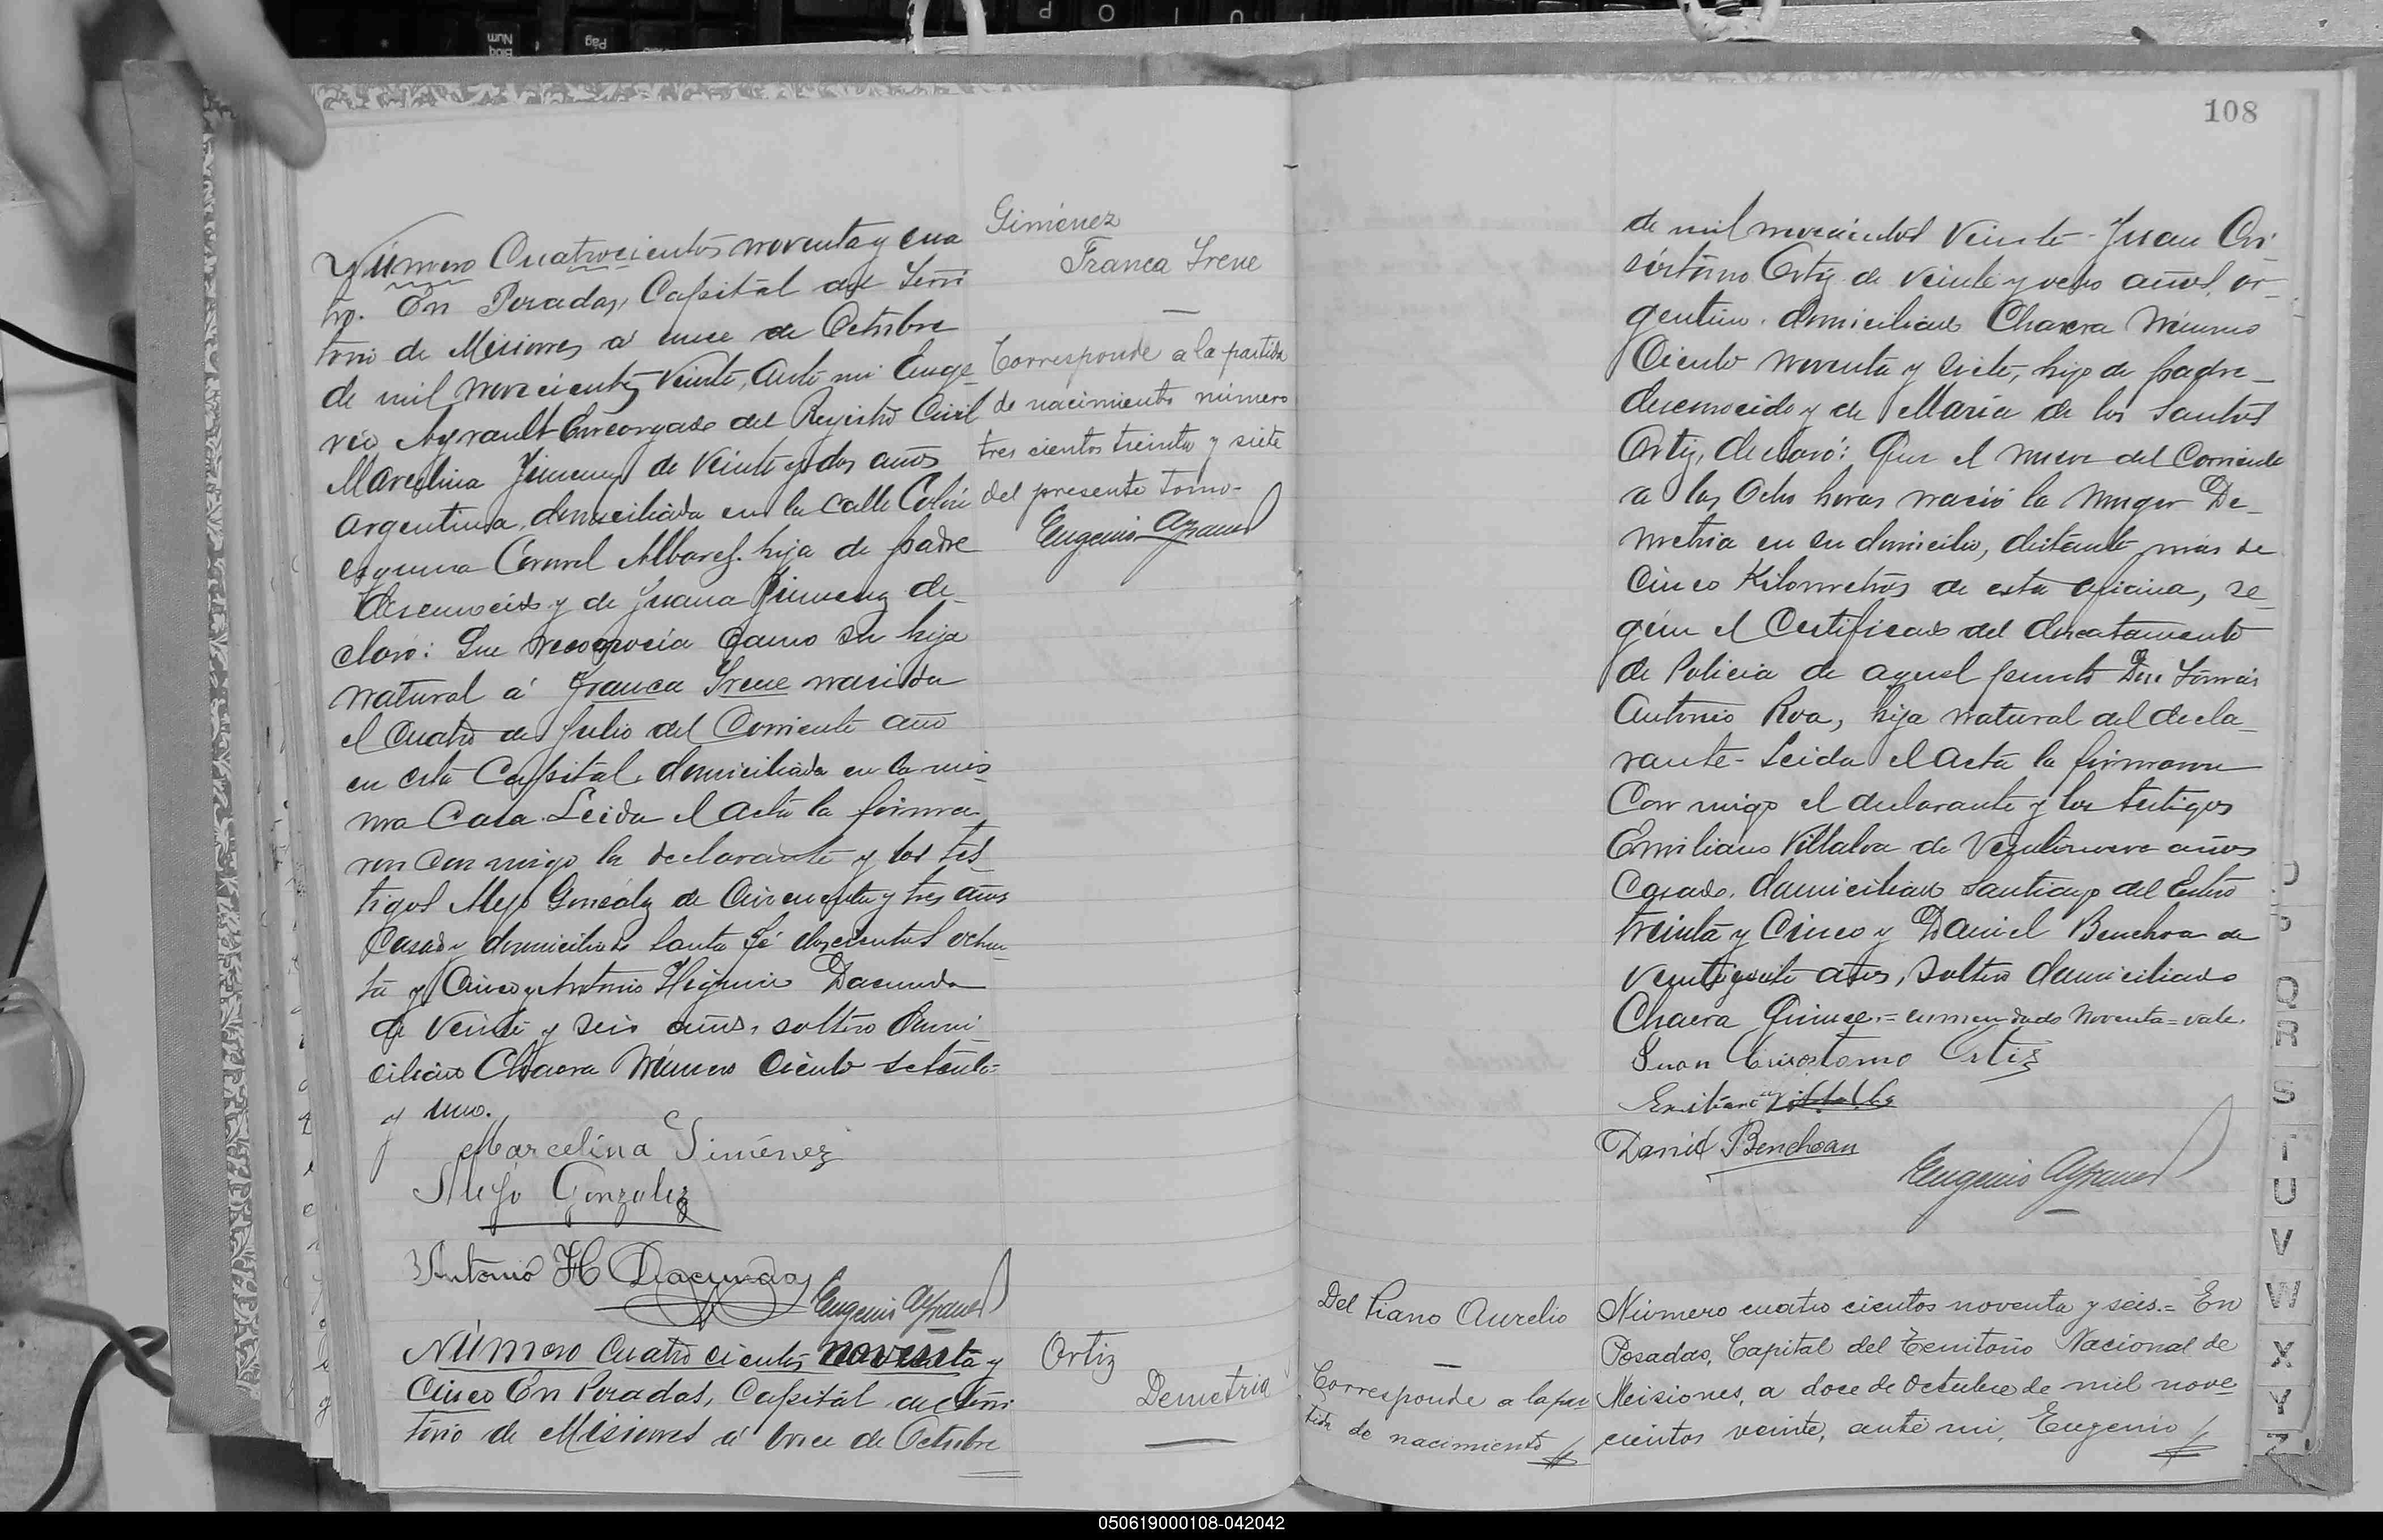 Número Cuatrocientos noventa y cua
tro. En Posadas, Capital del Terri
torio de Misiones a once de Octubre
de mil novecientos veinte, ante mi Euge
nio Ayrault Encargado del Registro Civil
Marcelina Jimenez de veinte y dos años
argentina, domiciliada en la calle Colón
esquina Coronel Albarez. hija de padre
desconocido y de Juana Jimenez de
claró: Que reconocía como su hija
natural á Franca Irene nacida
el cuatro de Julio del Corriente año
en esta Capital, domiciliada en la mis
ma Casa. Leida el Acta la firma
ron con migo la declarante y los tes
tigos Alejo Gonzalez de Cincuenta y tres años
Casado, domiciliado Santa Fé doscientos ochen
ta y Cinco y Antonio Higinio Dacunda
de veinte y seis años, soltero domi
ciliado Chacra Número Ciento setenta
y uno.
Marcelina Jiménez
Alejo Gonzalez
Antonio H Dacunda
Eugenio Ayrault
Giménez
Franca Irene
Corresponde a la partida
de nacimiento número
tres cientos treinta y siete
del presente tomo-
Eugenio Ayrault
Número Cuatro cientos noventa y
Cinco En Posadas, Capital del Terri
torio de Misiones á once de Octubre
Ortiz
Demetria
108
de mil novecientos Veinte - Juan Cri
sóstomo Ortiz de veinte y ocho años, ar-
gentino, domiciliado Chacra Número
Ciento noventa y siete, hijo de padre
desconocido y de María de los Santos
Ortiz, declaró: Que el nueve del Corriente
a las Ocho horas nació la muger De-
metria en su domicilio, distante más de
Cinco Kilometros de esta oficina, se-
gún el Certificado del destacamento
de Policia de aquel punto Don Tomás
Antonio Roa, hija natural del decla-
rante - Leida el Acta la firmaron
Con migo el declarante y los testigos
Emiliano Villalva de Veintinueve años
Casado, domiciliado Santiago del Estero
treinta y Cinco y Daniel Benchoa de
veintisiete años, soltero domiciliado
Chacra Quince. = enmendado noventa = vale.
Juan Crisostomo Ortiz
Emiliano Villalba
Daniel Benchoan
Eugenio Ayrault
Del Piano Aurelio
Corresponde a la par
tida de nacimiento
Número cuatro cientos noventa y seis. = En
Posadas, Capital del Territorio Nacional de
Misiones, a doce de Octubre de mil nove
cientos veinte, ante mi, Eugenio
Q
R
S
T
U
V
W
X
Y
Z
050619000108-042042